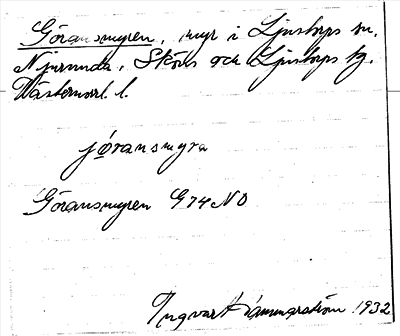 Göransmyren, myr i Ljustorps sn,
Njurunda, Sköns och Ljustorps tg.
Västernorrl. l.
jøransmyra
Göransmyren G74NO
Ingvar 1932